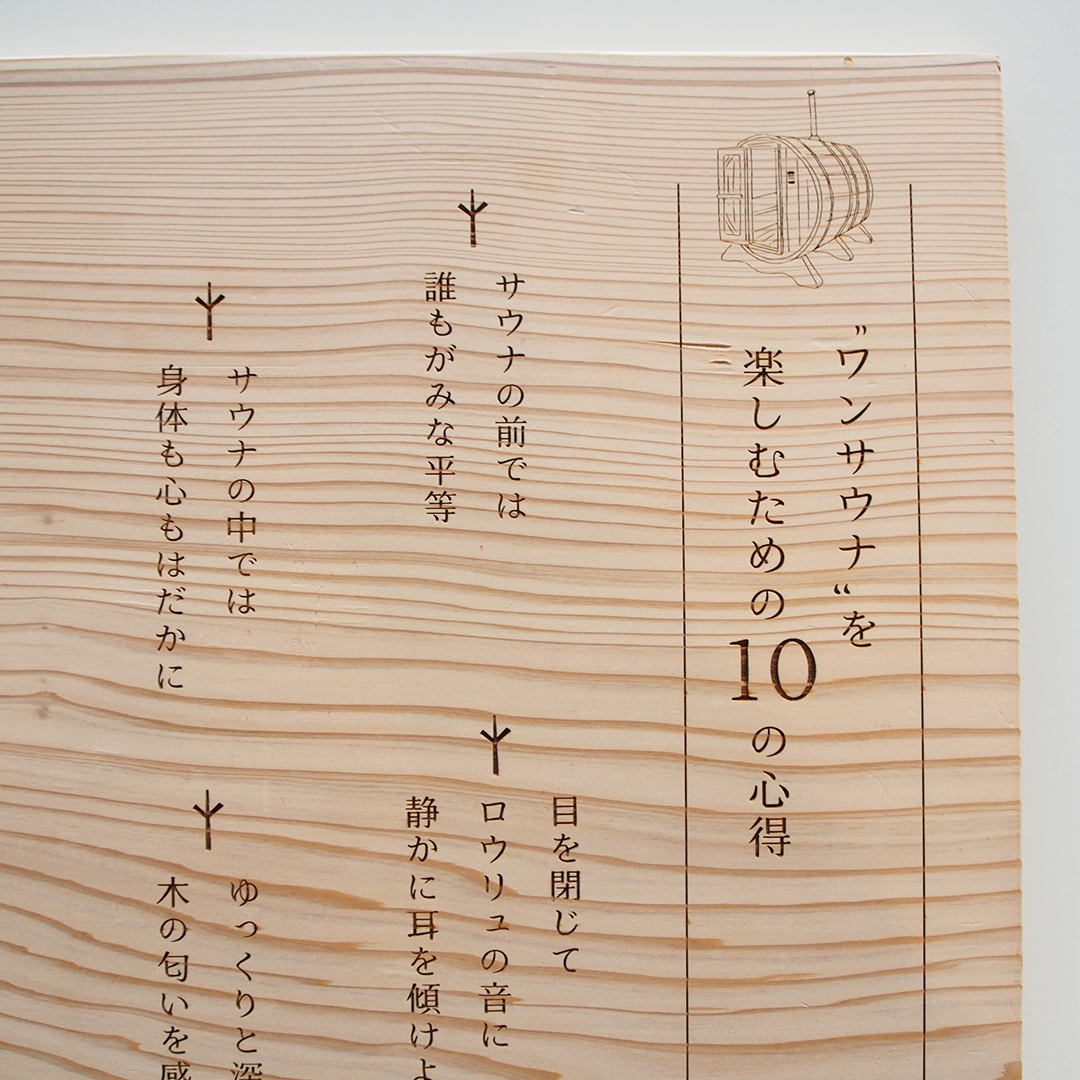 ”ワンサウナ“を
楽しむための10の心得
サウナの前では
誰もがみな平等
目を閉じて
ロウリュの音に
静かに耳を傾けよ
サウナの中では
身体も心もはだかに
ゆっくりと深
木の匂いを感